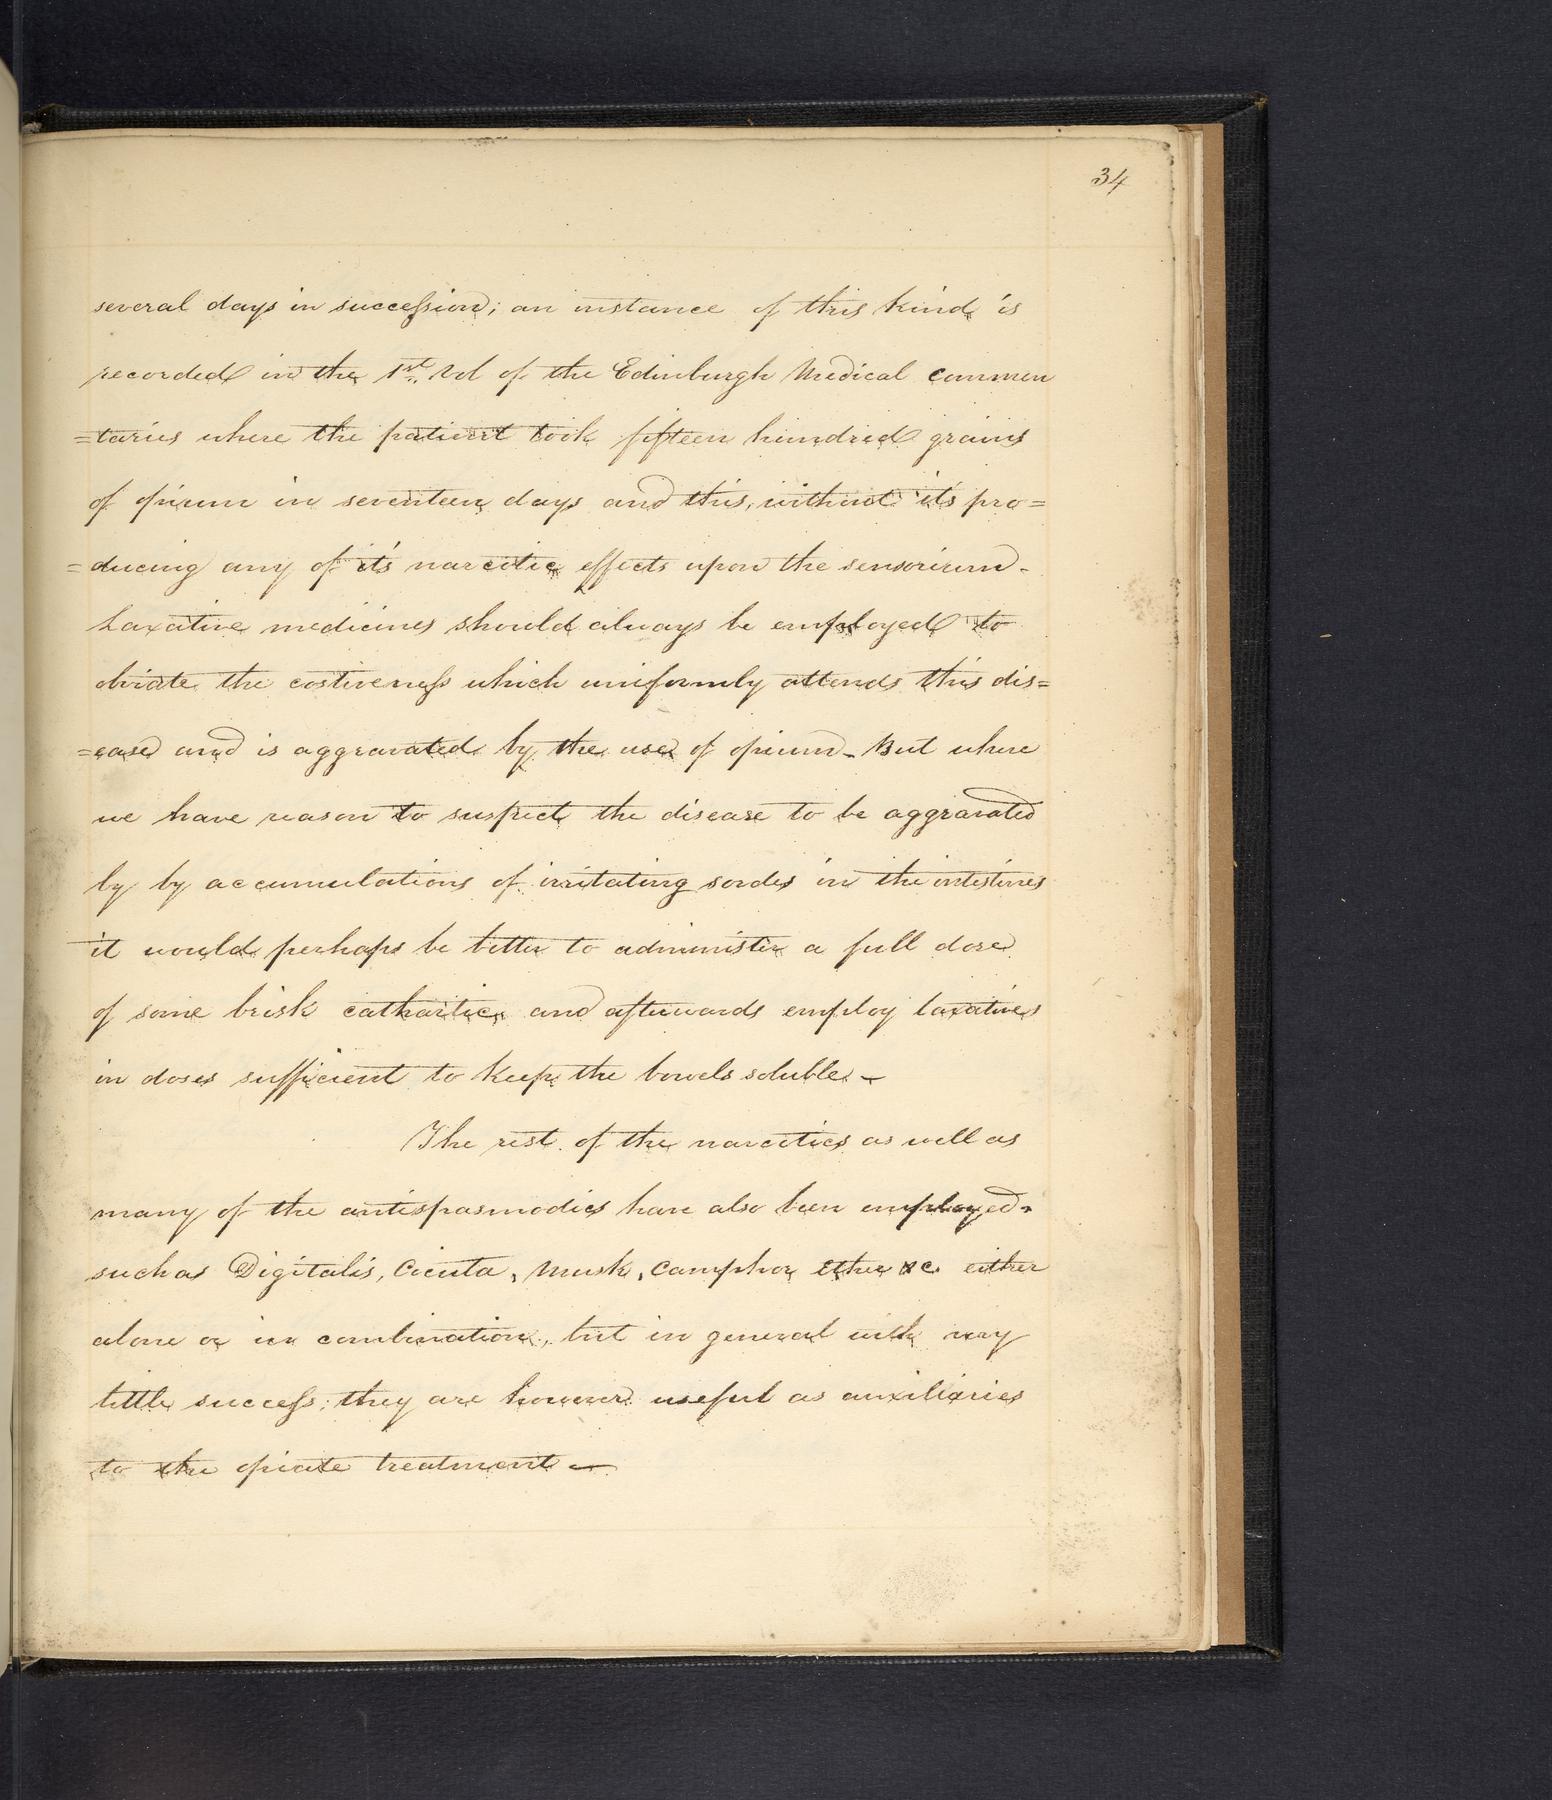 34
several days in succession; an instance of this kind is
recorded in the 1st. Vol of the Edinburgh Medical commen
=taries where the patient took fifteen hundred grains
of opium in seventeen days and this, without it's pro=
=ducing any of it's narcotic effects upon the sensorium-
Laxative medicines should always be employed to
obviate the costiveness which uniformly attends this dis=
=ease and is aggravated by the use of opium- But where
we have reason to suspect the disease to be aggravated
by by accumulations of irritating sordes in the intestines
it would perhaps be better to administer a full dose
of some brisk cathartic, and afterwards employ laxatives
in doses sufficient to keep the bowels soluble-
The rest of the narcotics as well as
many of the antispasmodics have also been employed-
such as Digitalis, Cicuta, Musk, Camphor Ether &c. either
alone or in combination, but in general with very
little success; they are however useful as auxiliaries
to the opiate treatment-